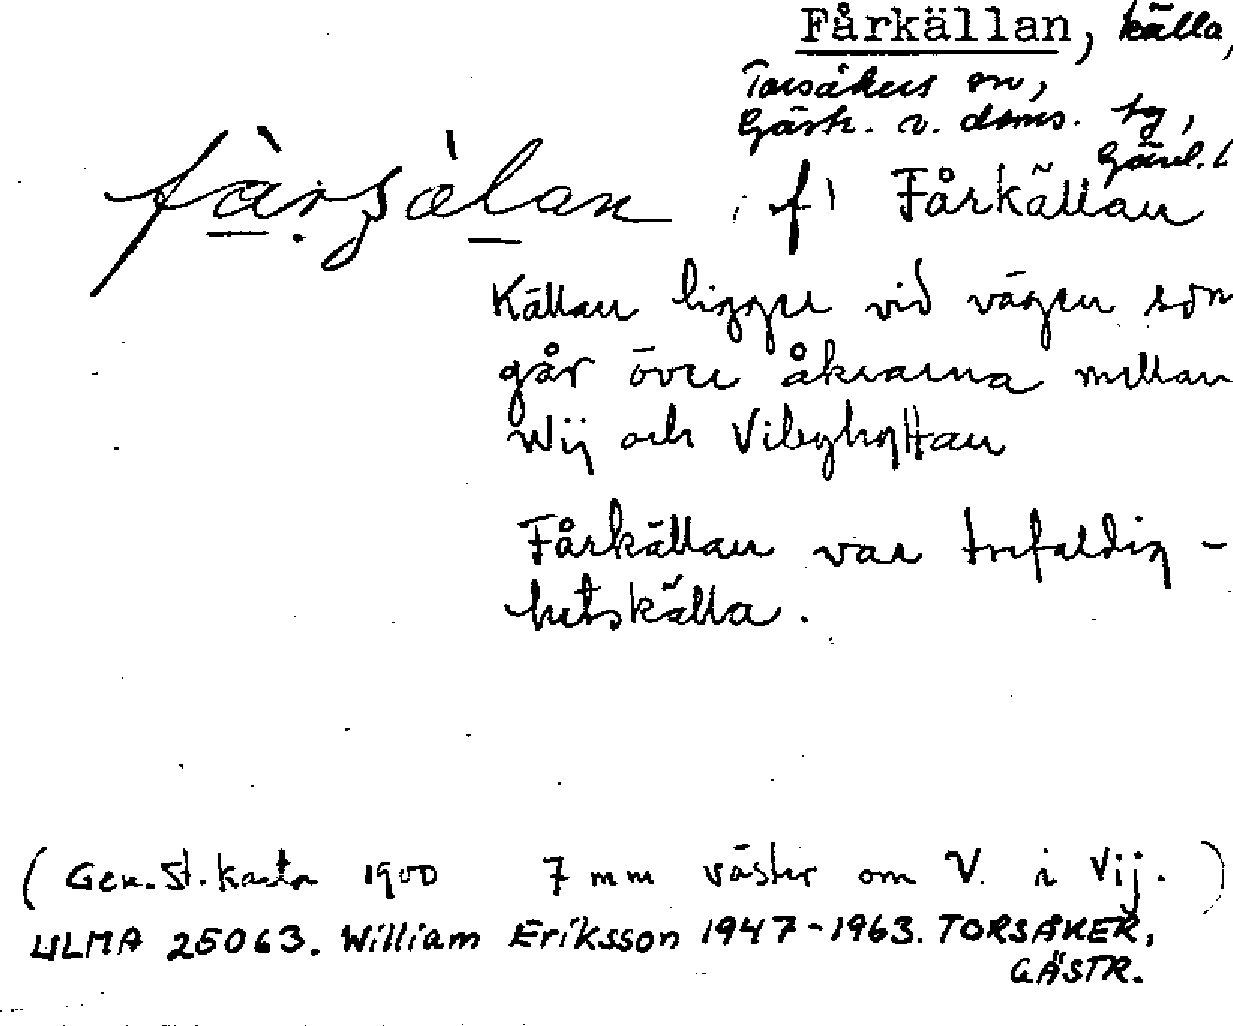 Fårkällan, källa,
Torsåkers sn,
Gästr. v. doms. tg,
Gävl. l
f' Fårkällan
Källan ligger vid vägen som
går över åkrarna mellan
Wij och Vibyhyttan
Fårkällan var trefaldig-
hetskälla.
(Gen.St.karta 1900 7 mm väster om V. i Vij.)
ULMA 25063. William Eriksson 1947-1963. TORSÅKER,
GÄSTR.